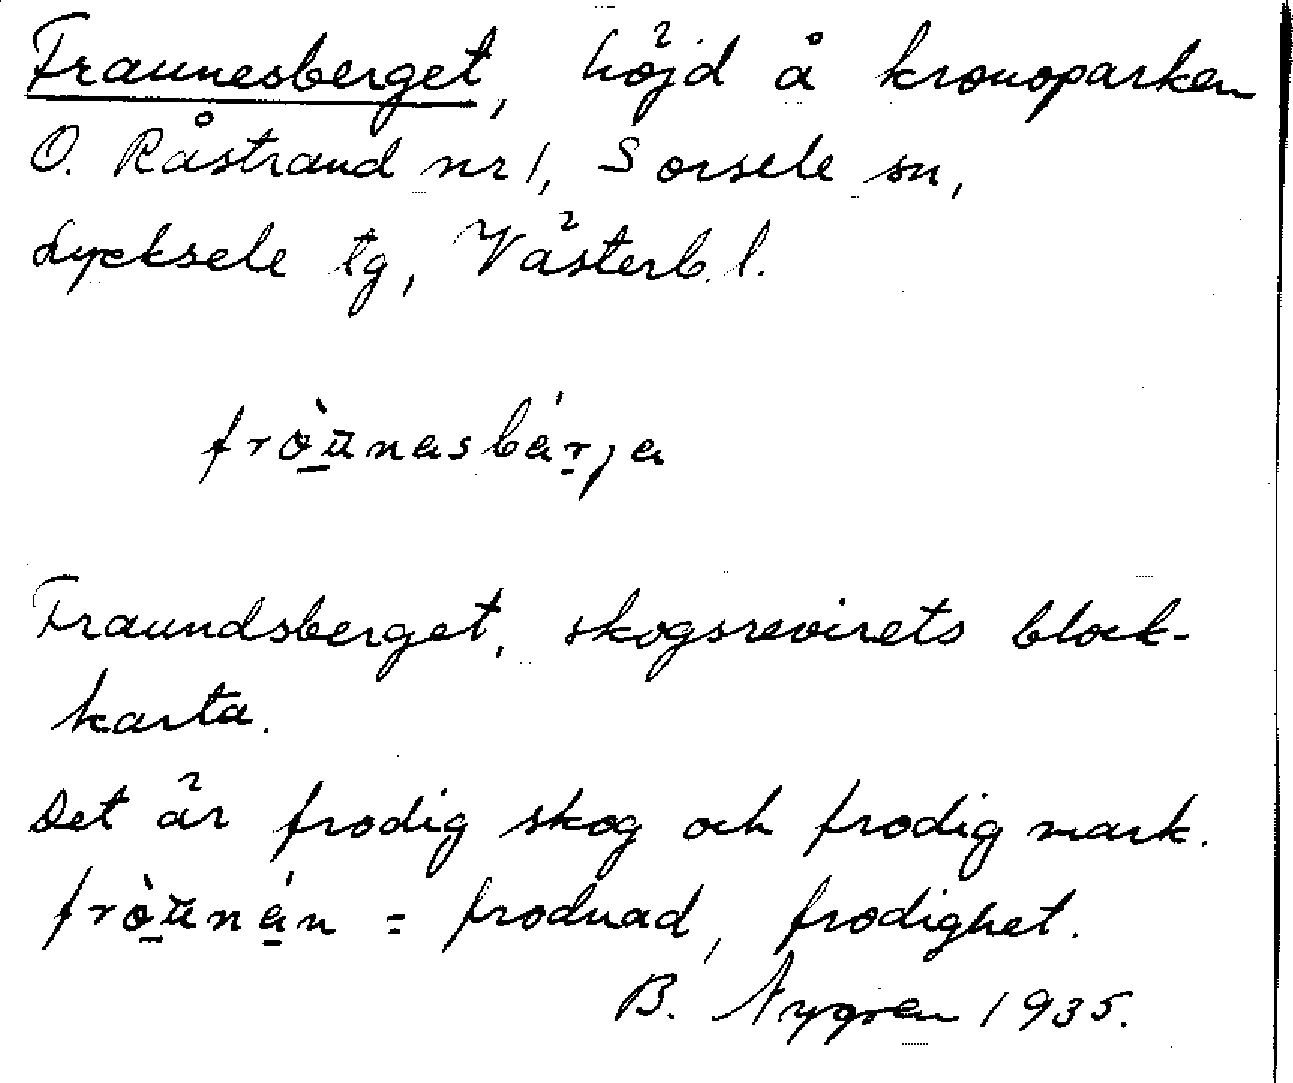 Fraunesberget, höjd å kronoparken
O. Råstrand nr 1, Sorsele sn,
Lycksele tg, Västerb. l.
fròu̯nasbá̱rja
Fraundsberget, skogsrevirets block-
karta.
Det är frodig skog och frodig mark.
fròu̯ná̱n = frodnad, frodighet.
B. Nygren 1935.